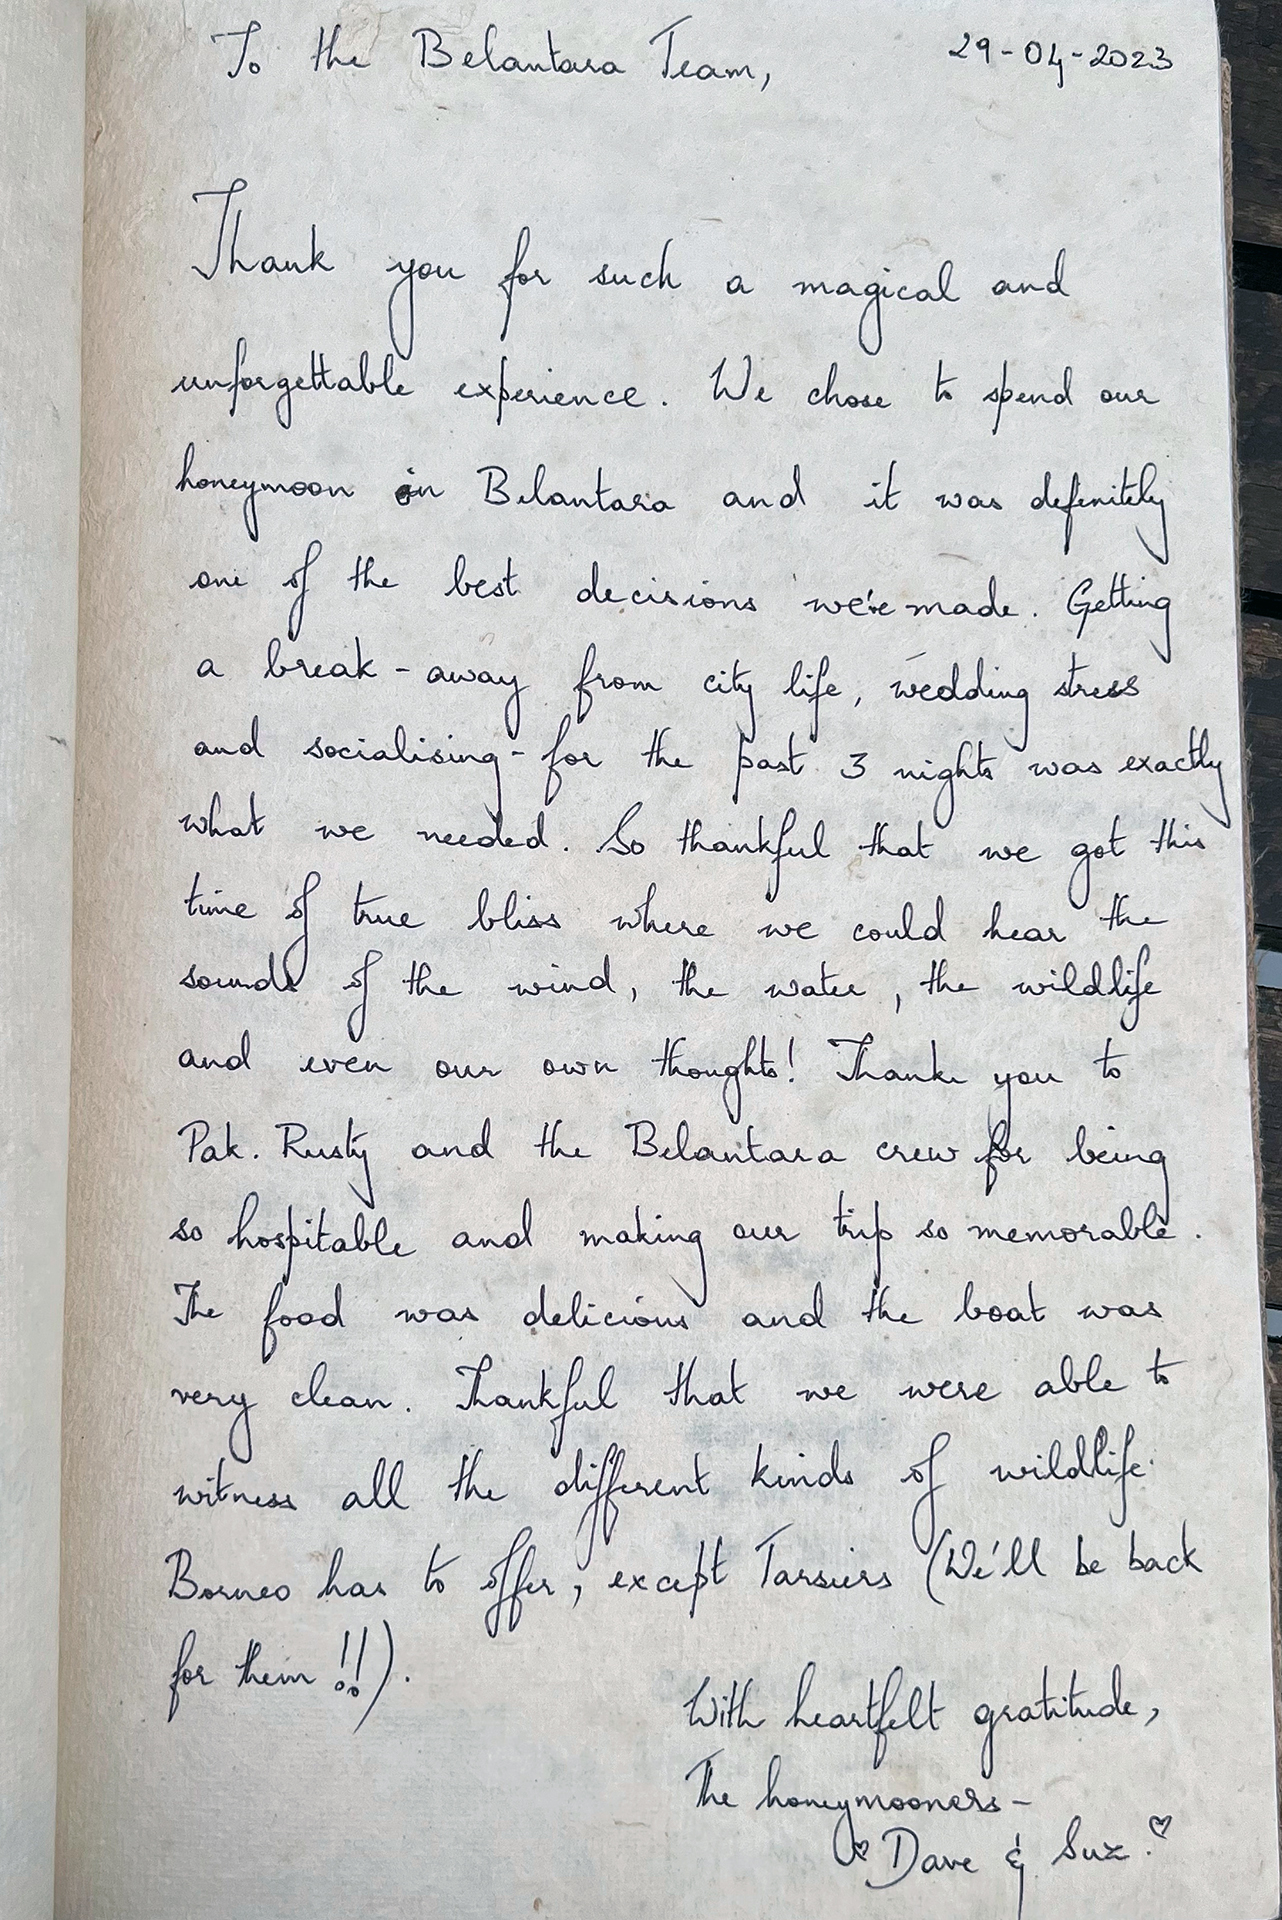 To the Belantara Team,
29-04-2023
Thank you for such a magical and
unforgettable experience. We chose to spend our
honeymoon in Belantara and it was definitely
one of the best decisions we've made. Getting
a break-away from city life, wedding stress
and socialising - for the past 3 nights was exactly
what we needed. So thankful that we got this
time of true bliss where we could hear the
sounds of the wind, the water, the wildlife
and even our own thoughts! Thank you to
Pak. Rusty and the Belantara crew for being
so hospitable and making our trip so memorable.
The food was delicious and the boat was
very clean. Thankful that we were able to
witness all the different kinds of wildlife
Borneo has to offer, except Tarsiers (We'll be back
for them!!).
With heartfelt gratitude,
The honeymooners -
♡ Dave & Suz. ♡